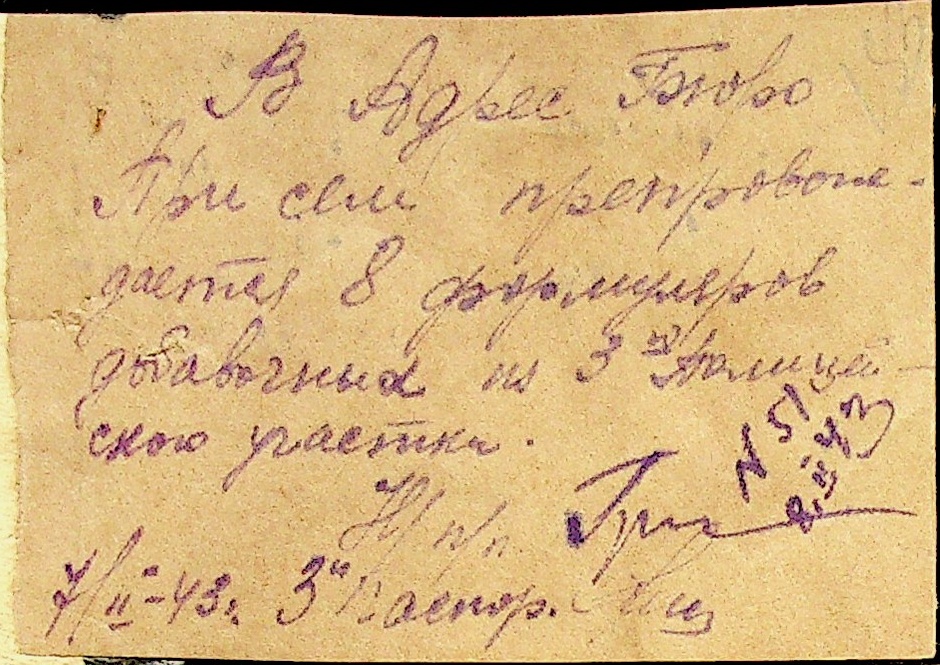 В Адрес Бюро
При сем препровож-
дается 8 формуляров
добавочных из 3го Полицей-
ского участка.
N 51
8.II 43
Н/пр
7/II-43г. 3й Паспор.